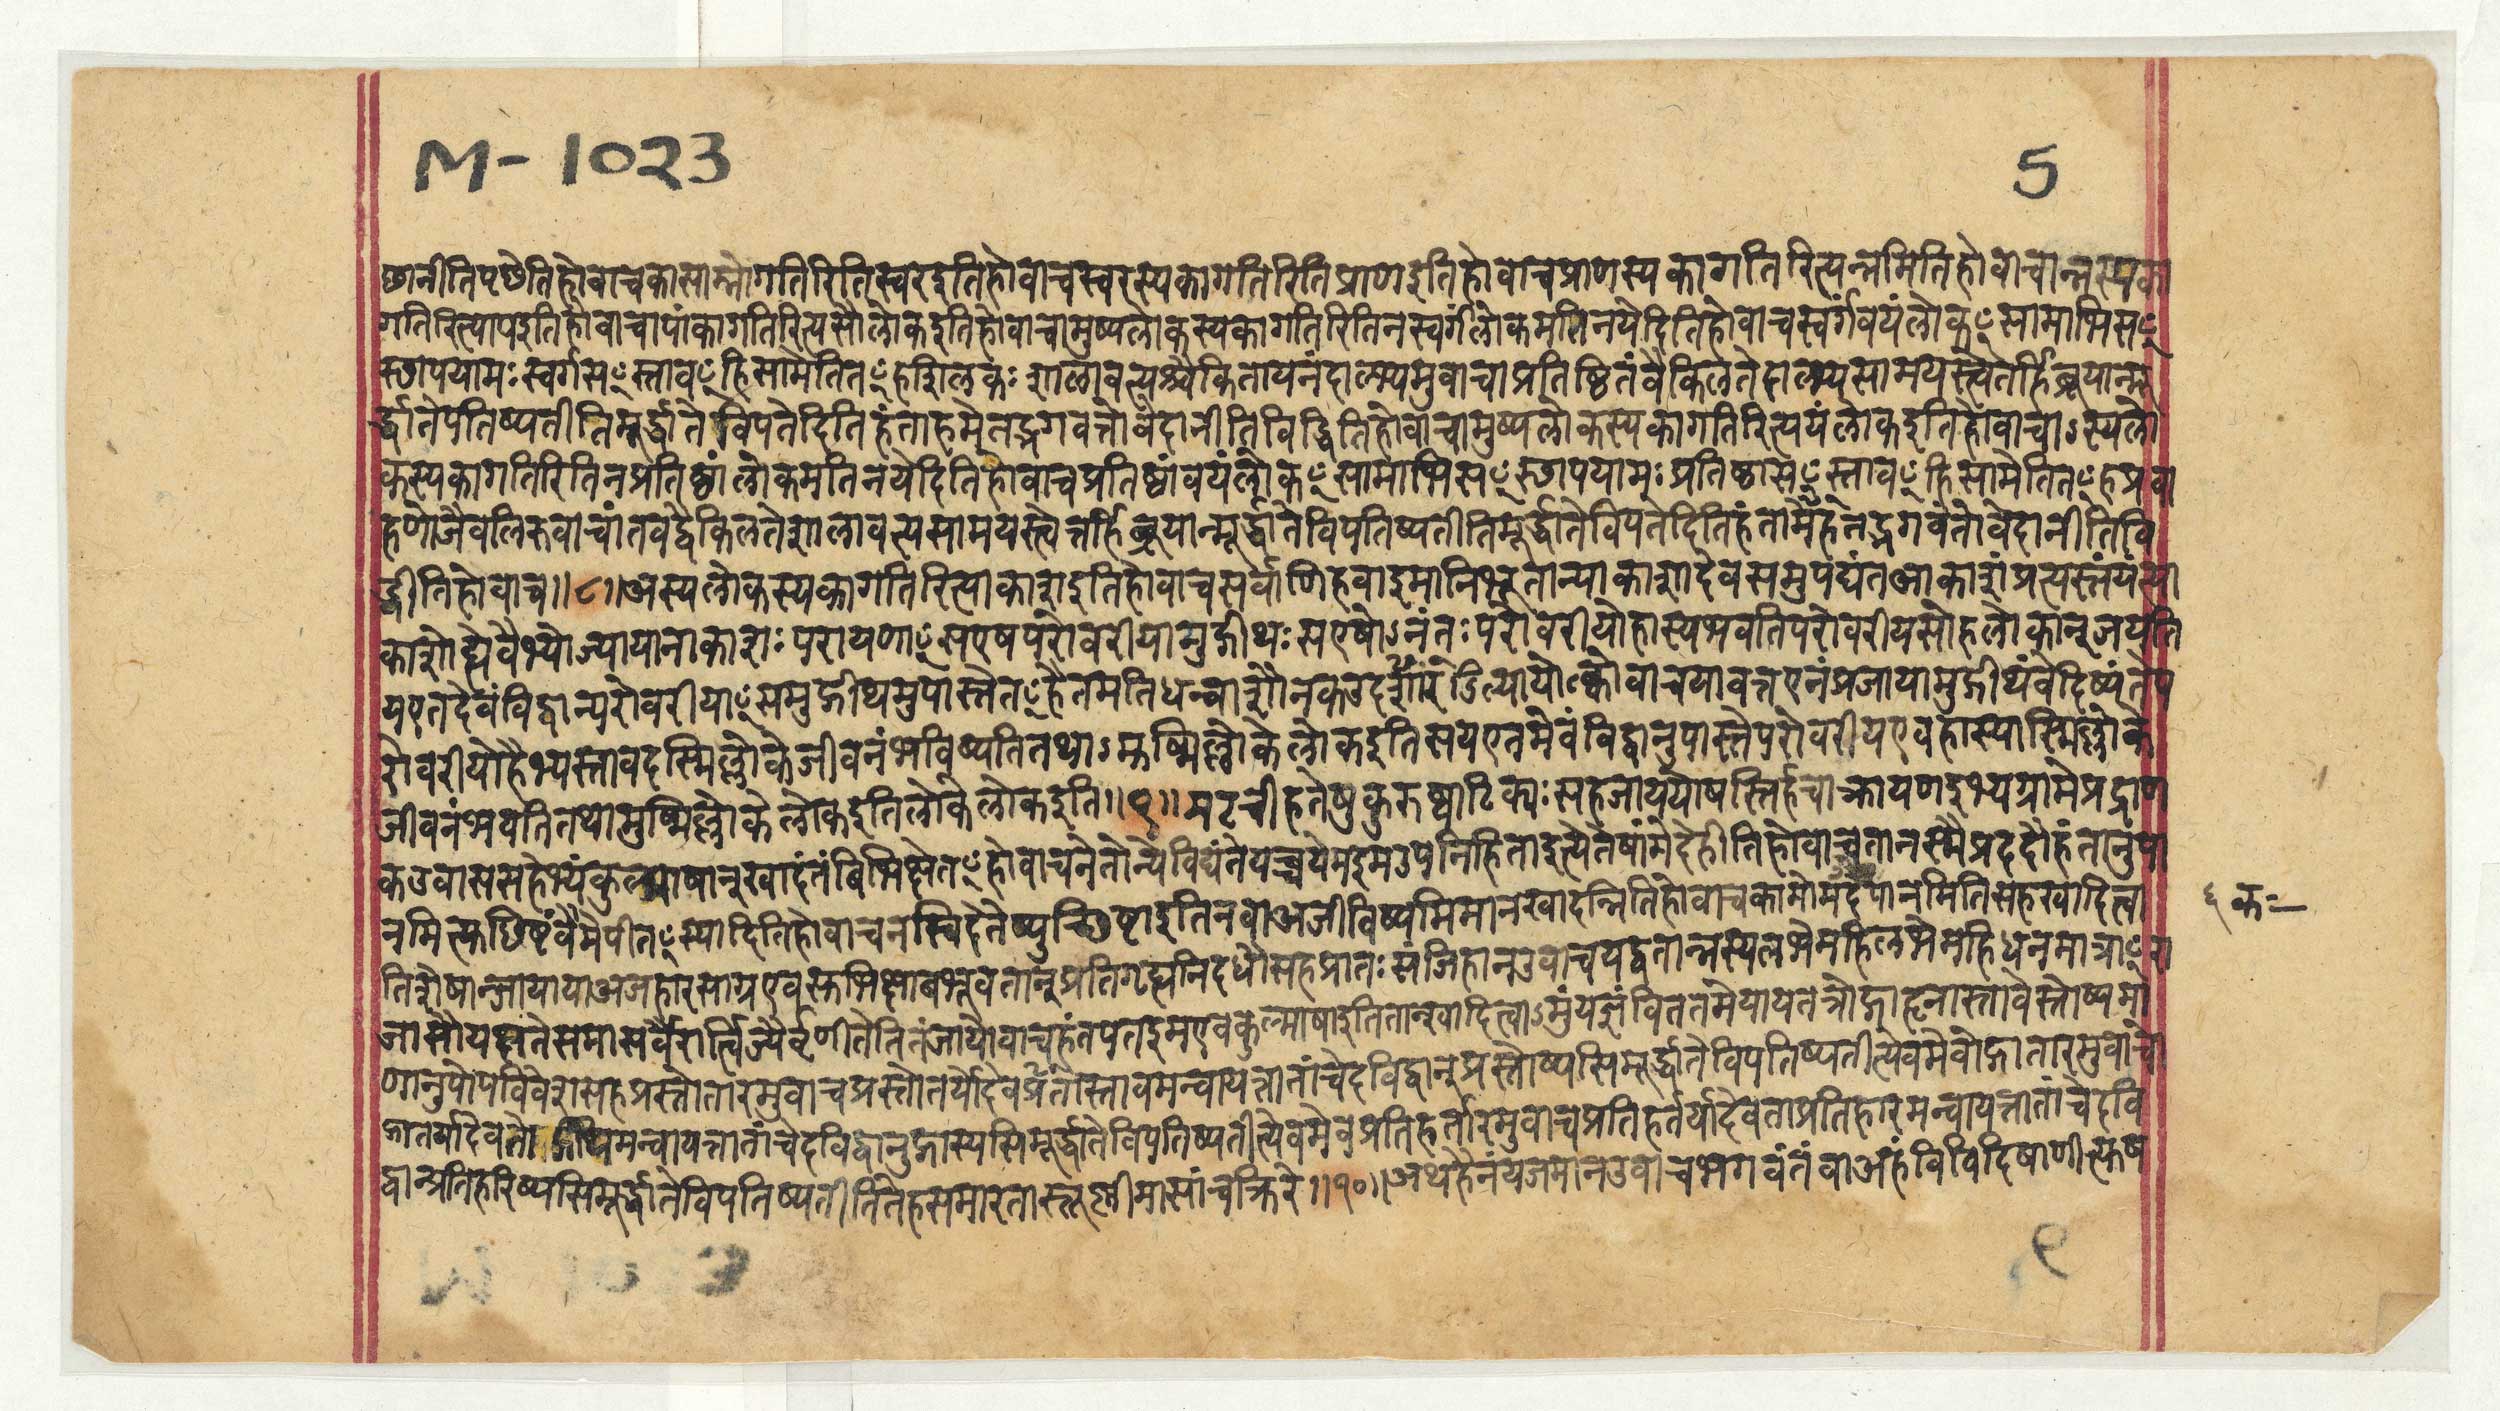 M-1023
5
छानीतिपृछेतिहोवाचकासाम्नोगतिरितिस्वरइतिहोवाचस्वरस्यकागतिरितिप्राणइतिहोवाचप्राणस्यकागतिरित्यन्नमितिहोवाचान्नस्यका
गतिरित्यापइतिहोवाचापांकागतिरित्यसौलोकइतिहोवाचामुष्यलोकस्यकागतिरितिनस्वर्गंलोकमतिनयेदितिहोवाचस्वर्गंवयंलोकꣳसामाभिसꣳ
स्थापयामःस्वर्गसꣳस्तावꣳहिसामेतितꣳहशिलकःशालावत्यश्चैकितायनंदाल्भ्यमुवाचाप्रतिष्ठितंवैकिलतेदाल्भ्यसामयस्त्वेतर्हिब्रूयान्मू
र्द्धातेपतिष्यतीतिमूर्द्धातेविपतेदितिहंताहमेतद्भगवत्तोवेदानीतिविद्धितिहोवाचामुष्यलोकस्यकागतिरित्ययंलोकइतिहोवाचाऽस्यलो
कस्यकागतिरितिनप्रतिष्ठांलोकमतिनयेदितिहोवाचप्रतिष्ठांवयंलोकꣳसामाभिसꣳस्थापयामःप्रतिष्ठासꣳस्तावꣳहिसामेतितꣳहप्रवा
हणोजैवलिरुवाचांतवद्वैकिलतेशालावत्यसामयस्त्वेत्तर्हिब्रूयान्मूर्द्धातेविपतिष्यतीतिमूर्द्धातेविपतेदितिहंतामेहनद्भगवंतोवेदानीतिवि
द्धीतिहोवाच॥८॥अस्यलोकस्यकागतिरित्याकाशइतिहोवाचसर्वाणिहवाइमानिभूतान्याकाशादेवसमुपद्यंतआकाशंप्रत्यस्तंयंत्या
काशोह्येवैभ्योज्यायानाकाशःपरायणꣳसएषपरोवरीयामुद्गीथःसएषोऽनंतःपरोवरीयोहास्यभवतिपरोवरीयसोहलोकान्जयति
यएतदेवंविद्वान्परोवरीयाꣳसमुद्गीथमुपास्तेतꣳहैतमतिधन्वाशौनकउदरशांडिल्यायोक्त्वोवाचयावत्तएनंप्रजायामुद्गीथंवेदिष्यंतेप
रोवरीयोहैभ्यस्तावदस्मिल्लोकेजीवनंभविष्यतितथाऽमुष्मिल्लोकेलोकइतिसयएतमेवंविद्वानुपास्तेपरोवरीयएवहास्यास्मिल्लोके
जीवनंभवतितथामुष्मिल्लोकेलोकइतिलोकेलोकइति॥९॥मटचीहतेषुकुरुष्वाटिक्यःसहजाययोषस्तिर्हचाक्रायणइभ्यग्रामेप्रद्राण
कउवाससहेभ्यंकुल्माषान्खादंतंबिभिक्षेतꣳहोवाचनेतोन्येविद्यंतेयच्चयेमइमउपनिहिताइत्येतेषांमेदेहीतिहोवाचतानस्मैप्रददौहंतानुपा
नमित्युछिष्टंवैमेपीतꣳस्यादितिहोवाचनस्विदेतेष्युच्छिष्टाइतिनवाअजीविष्यमिमानखादन्नितिहोवाचकामोमउदपानमितिसहखादित्वा
६ कः
तिशेषान्जायायाअजहारसाग्रएवसुभिक्षाबभूवतान्प्रतिगृह्यनिदधौसहप्रातःसंजिहानउवाचयद्बतान्नस्यलभेमहिलभेमहिधनमात्राꣳरा
जासौयक्ष्यतेसमासर्वैरार्त्विज्यैर्वृणीतेतितंजायोवाचहंतपतइमएवकुल्माषाइतितान्खादित्वाऽमुंयज्ञंविततमेयायतत्रोद्गातॄनास्तावेस्तोष्यमा
णानुपोपविवेशसहप्रस्तोतारमुवाचप्रस्तोतर्यादेवतास्तावमन्वायत्तातांचेदविद्वान्प्रस्तोष्यसिमूर्द्धातेविपतिष्यतीत्येवमेवोद्गातारमुवाचो
द्गातर्यादेवतोद्गीथमन्वायत्तातांचेदविद्वानुद्गास्यसिमूर्द्धातेविपतिष्यतीत्येवमेवप्रतिहर्तारमुवाचप्रतिहर्तर्यादेवताप्रतिहारमन्वायत्तातांचेदवि
द्वान्प्रतिहरिष्यसिमूर्द्धातेविपतिष्यतीतितेहसमारतास्तूष्णीमासांचक्रिरे॥१०॥अथहैनंयजमानउवाचभगवंतंवाअहंविविदिषाणीत्युष
९